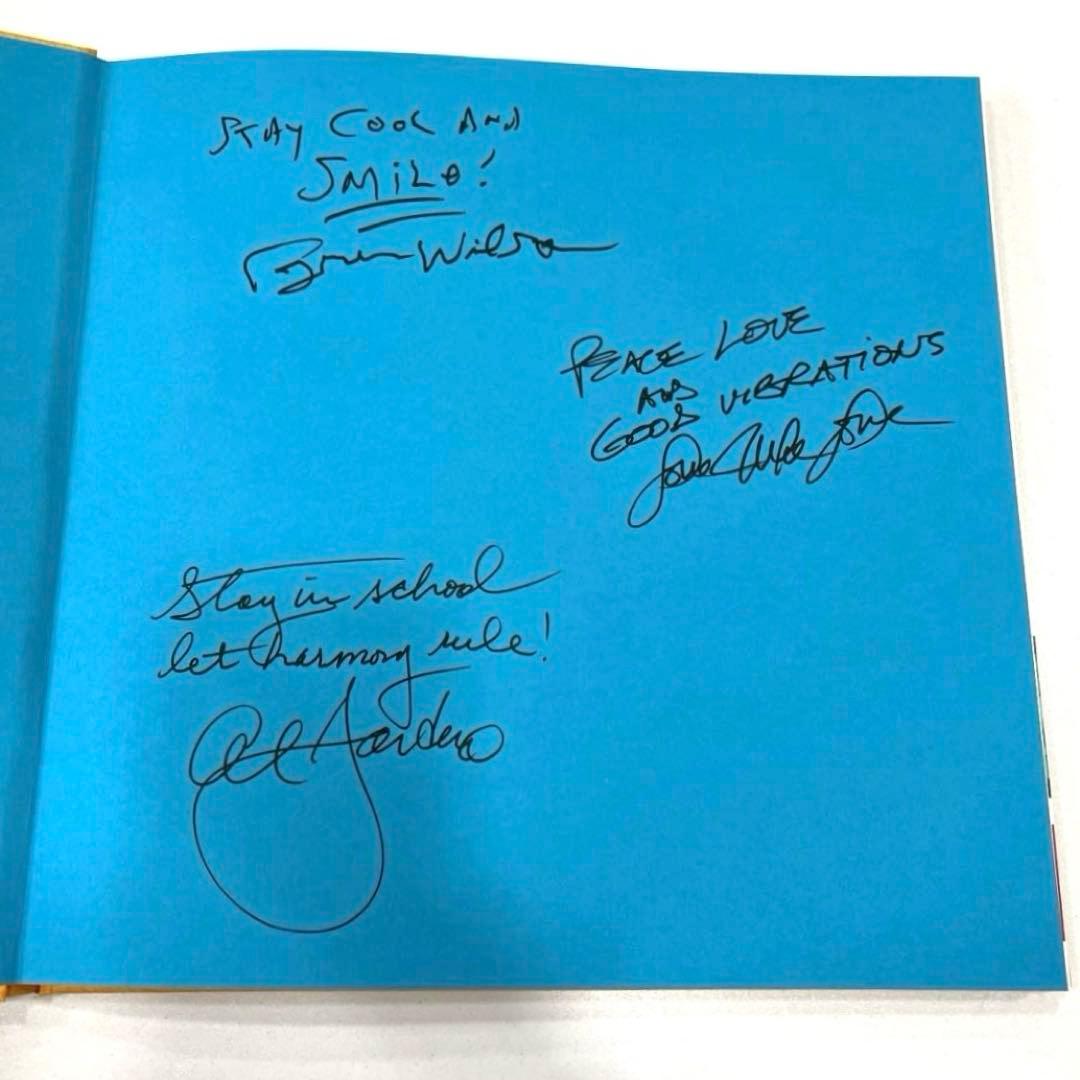 STAY COOL AND
SMiLe!
Brian Wilson
PEACE LOVE
AND
GOOD VIBRATIONS
Love Mike Love
Stay in school
let harmony rule!
Al Jardine